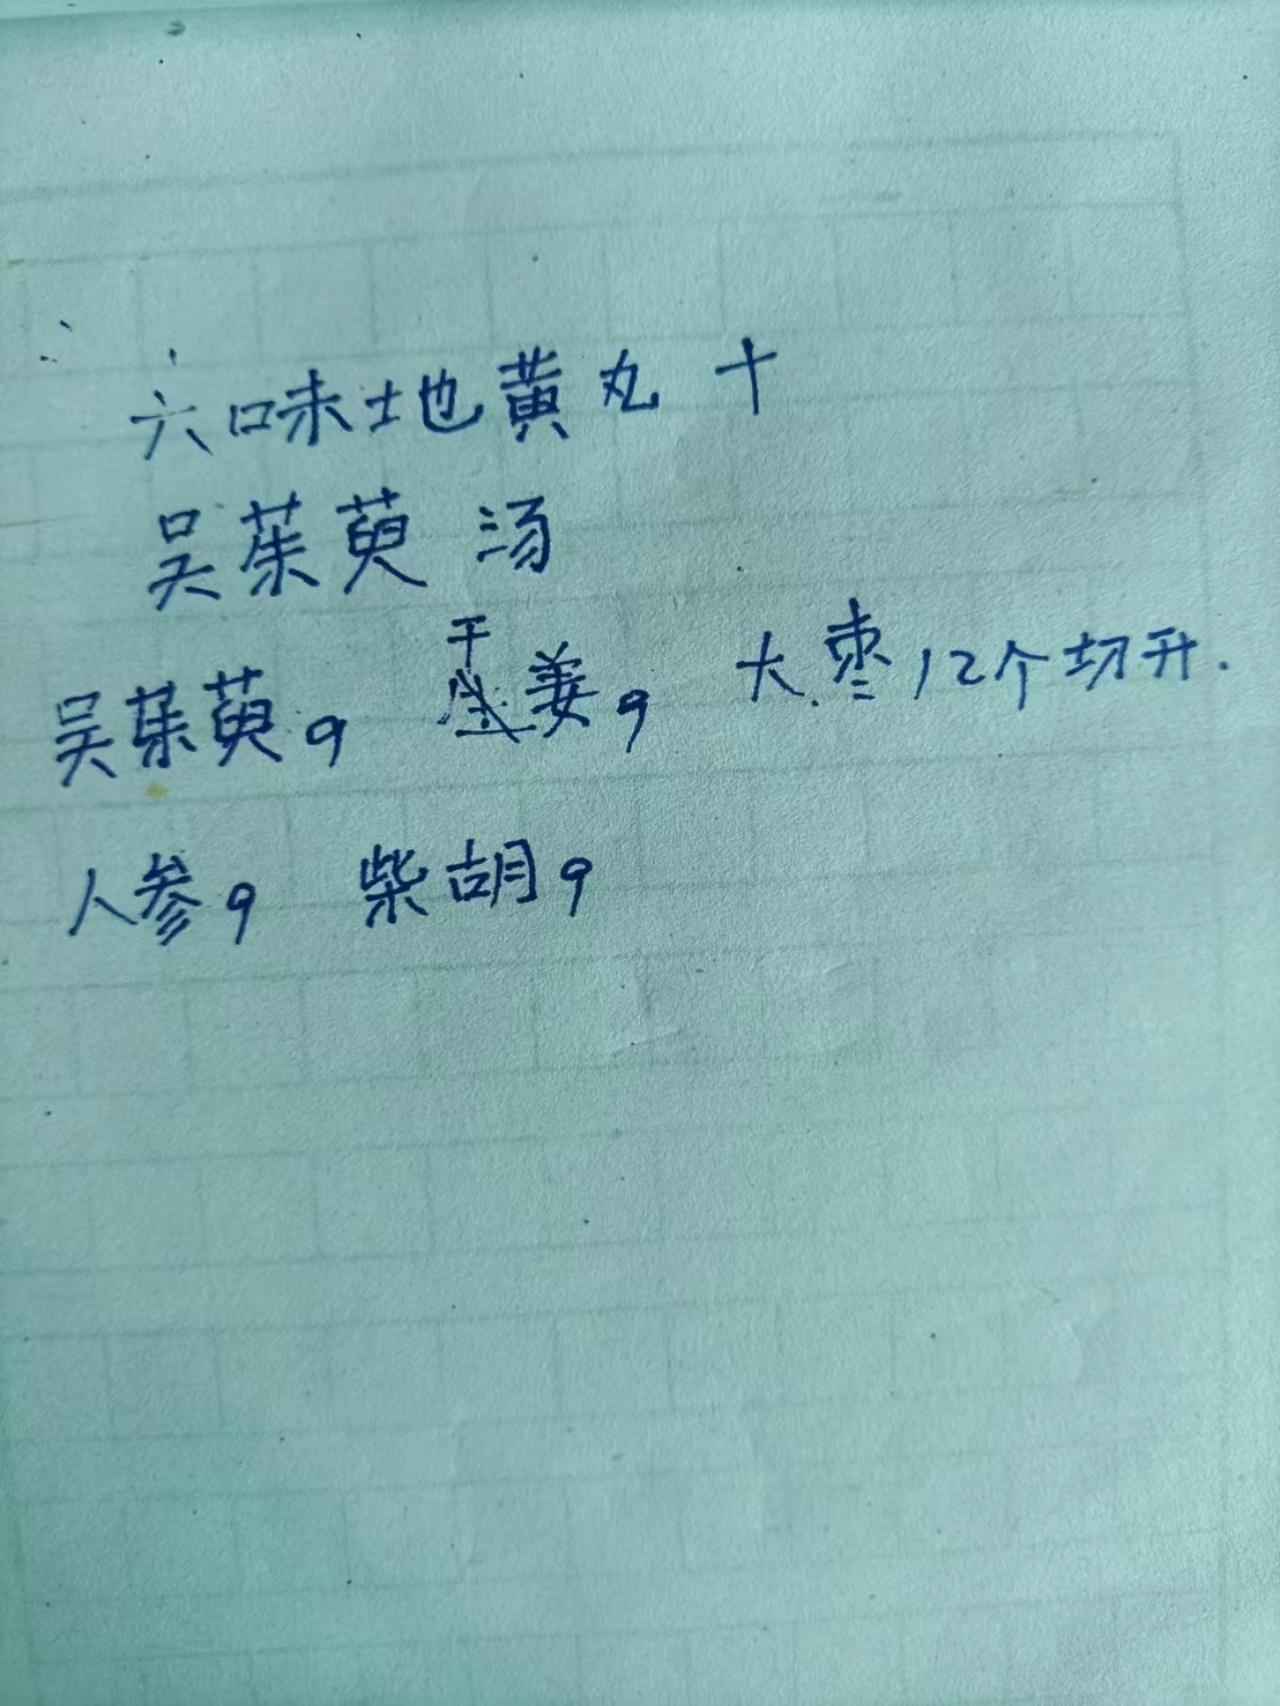 六味地黄丸 +
吴茱萸 汤
吴茱萸9 干姜9 大枣12个切开.
人参9 柴胡9